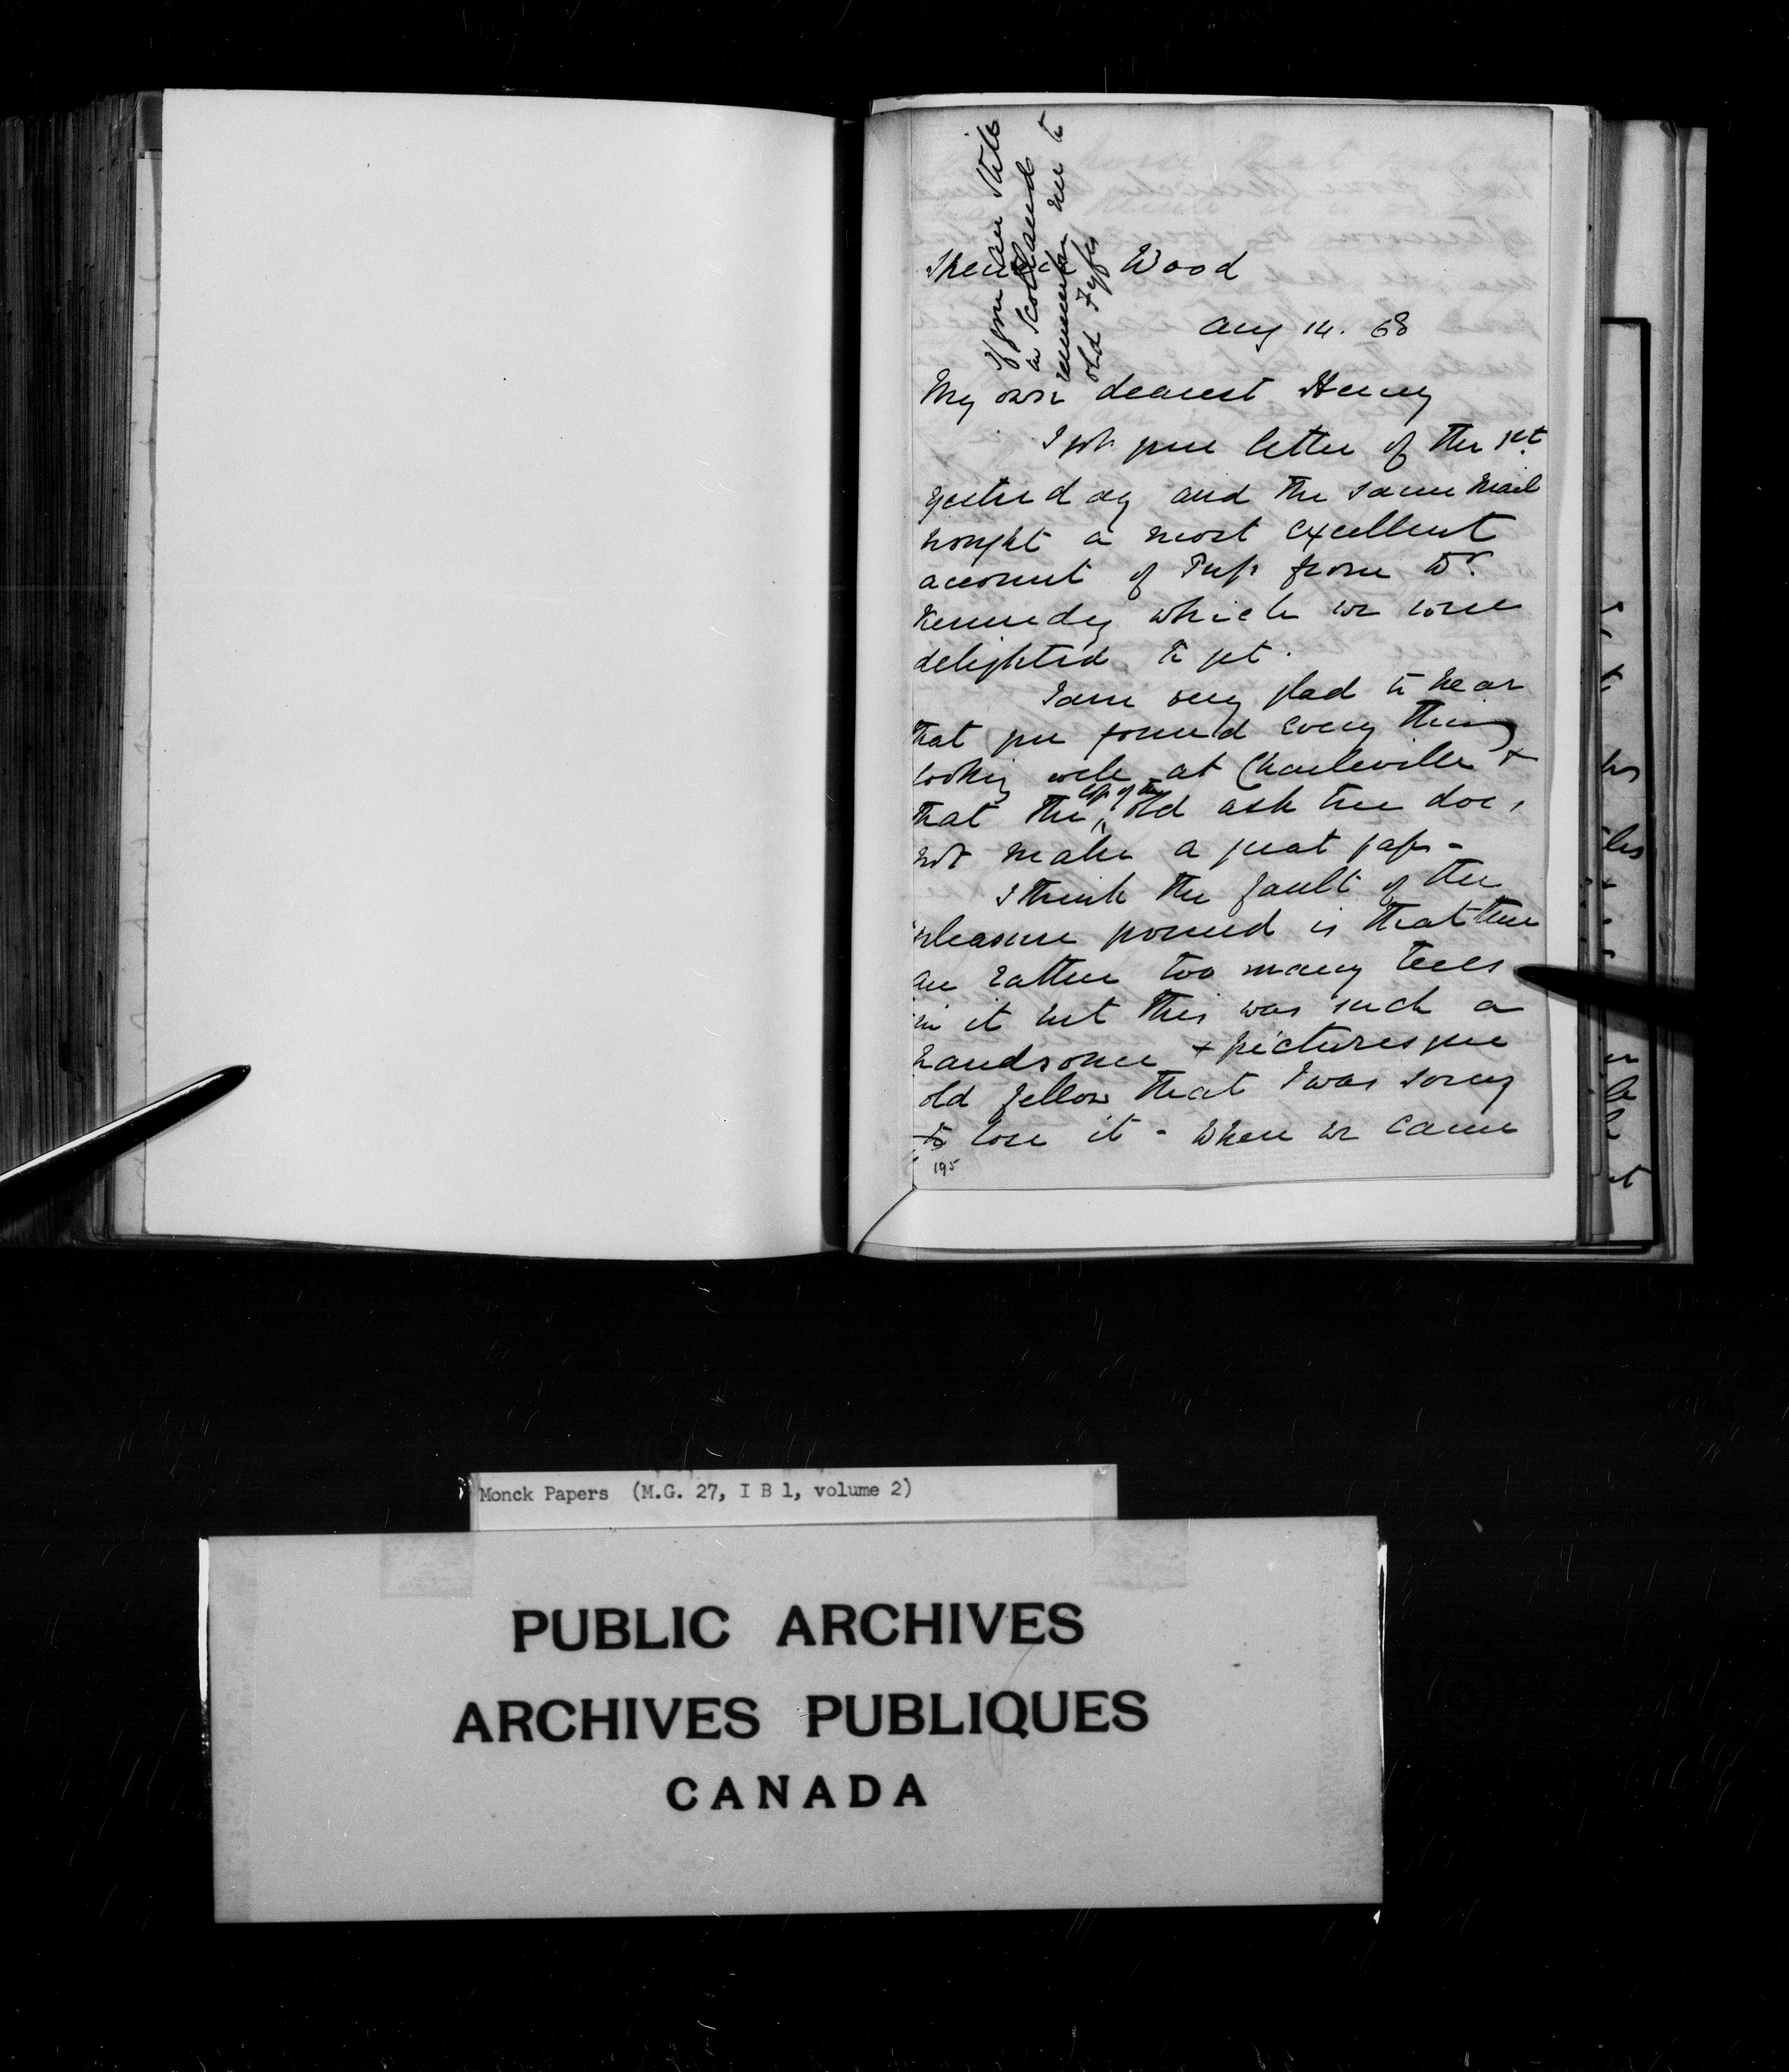 If you are still
in Scotland
remember me to
old Fyfe
Spencer Wood
Aug 14. 68
My own dearest Henry
I got your letter of the 1st
yesterday and the same mail
brought a most excellent
account of Puss from Dr.
Kennedy which we were
delighted to get.
I am very glad to hear
that you found every thing
looking well at Charleville &
that the loss of the old ash tree does
not make a great gap -
I think the fault of the
pleasure ground is that there
are rather too many trees
in it but this was such a
handsome & picturesque
old fellow that I was sorry
to lose it - When we came
195
Monck Papers (M.G. 27, I B 1, volume 2)
PUBLIC ARCHIVES
ARCHIVES PUBLIQUES
CANADA